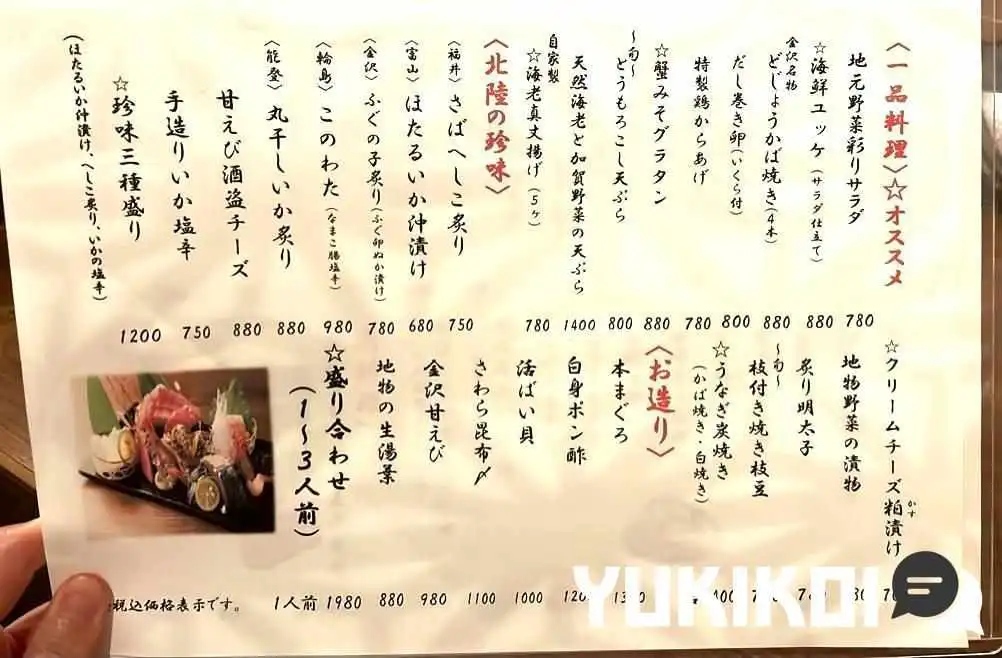 〈一品料理〉☆オススメ
地元野菜彩りサラダ 780
☆海鮮ユッケ(サラダ仕立て) 880
金沢名物
どじょうかば焼き(4本) 880
だし巻き卵(いくら付) 800
特製鶏からあげ 780
☆蟹みそグラタン 880
〜旬〜
とうもろこし天ぷら 800
天然海老と加賀野菜の天ぷら 1400
自家製
☆海老真丈揚げ(5ヶ) 780
〈北陸の珍味〉
〈福井〉さばへしこ炙り 750
〈富山〉ほたるいか沖漬け 680
〈金沢〉ふぐの子炙り(ふぐ卵ぬか漬け) 780
〈輪島〉このわた(なまこ腸塩辛) 980
〈能登〉丸干しいか炙り 880
甘えび酒盗チーズ 880
手造りいか塩辛 750
☆珍味三種盛り 1200
(ほたるいか沖漬け、へしこ炙り、いかの塩辛)
☆クリームチーズ粕漬け
かす
地物野菜の漬物
炙り明太子
〜旬〜
枝付き焼き枝豆
☆うなぎ炭焼き
(かば焼き・白焼き)
〈お造り〉
本まぐろ
白身ポン酢
活ばい貝 1000
さわら昆布〆 1100
金沢甘えび 980
地物の生湯葉 880
☆盛り合わせ
(1〜3人前)
1人前 1980
税込価格表示です。
YUKIKOI